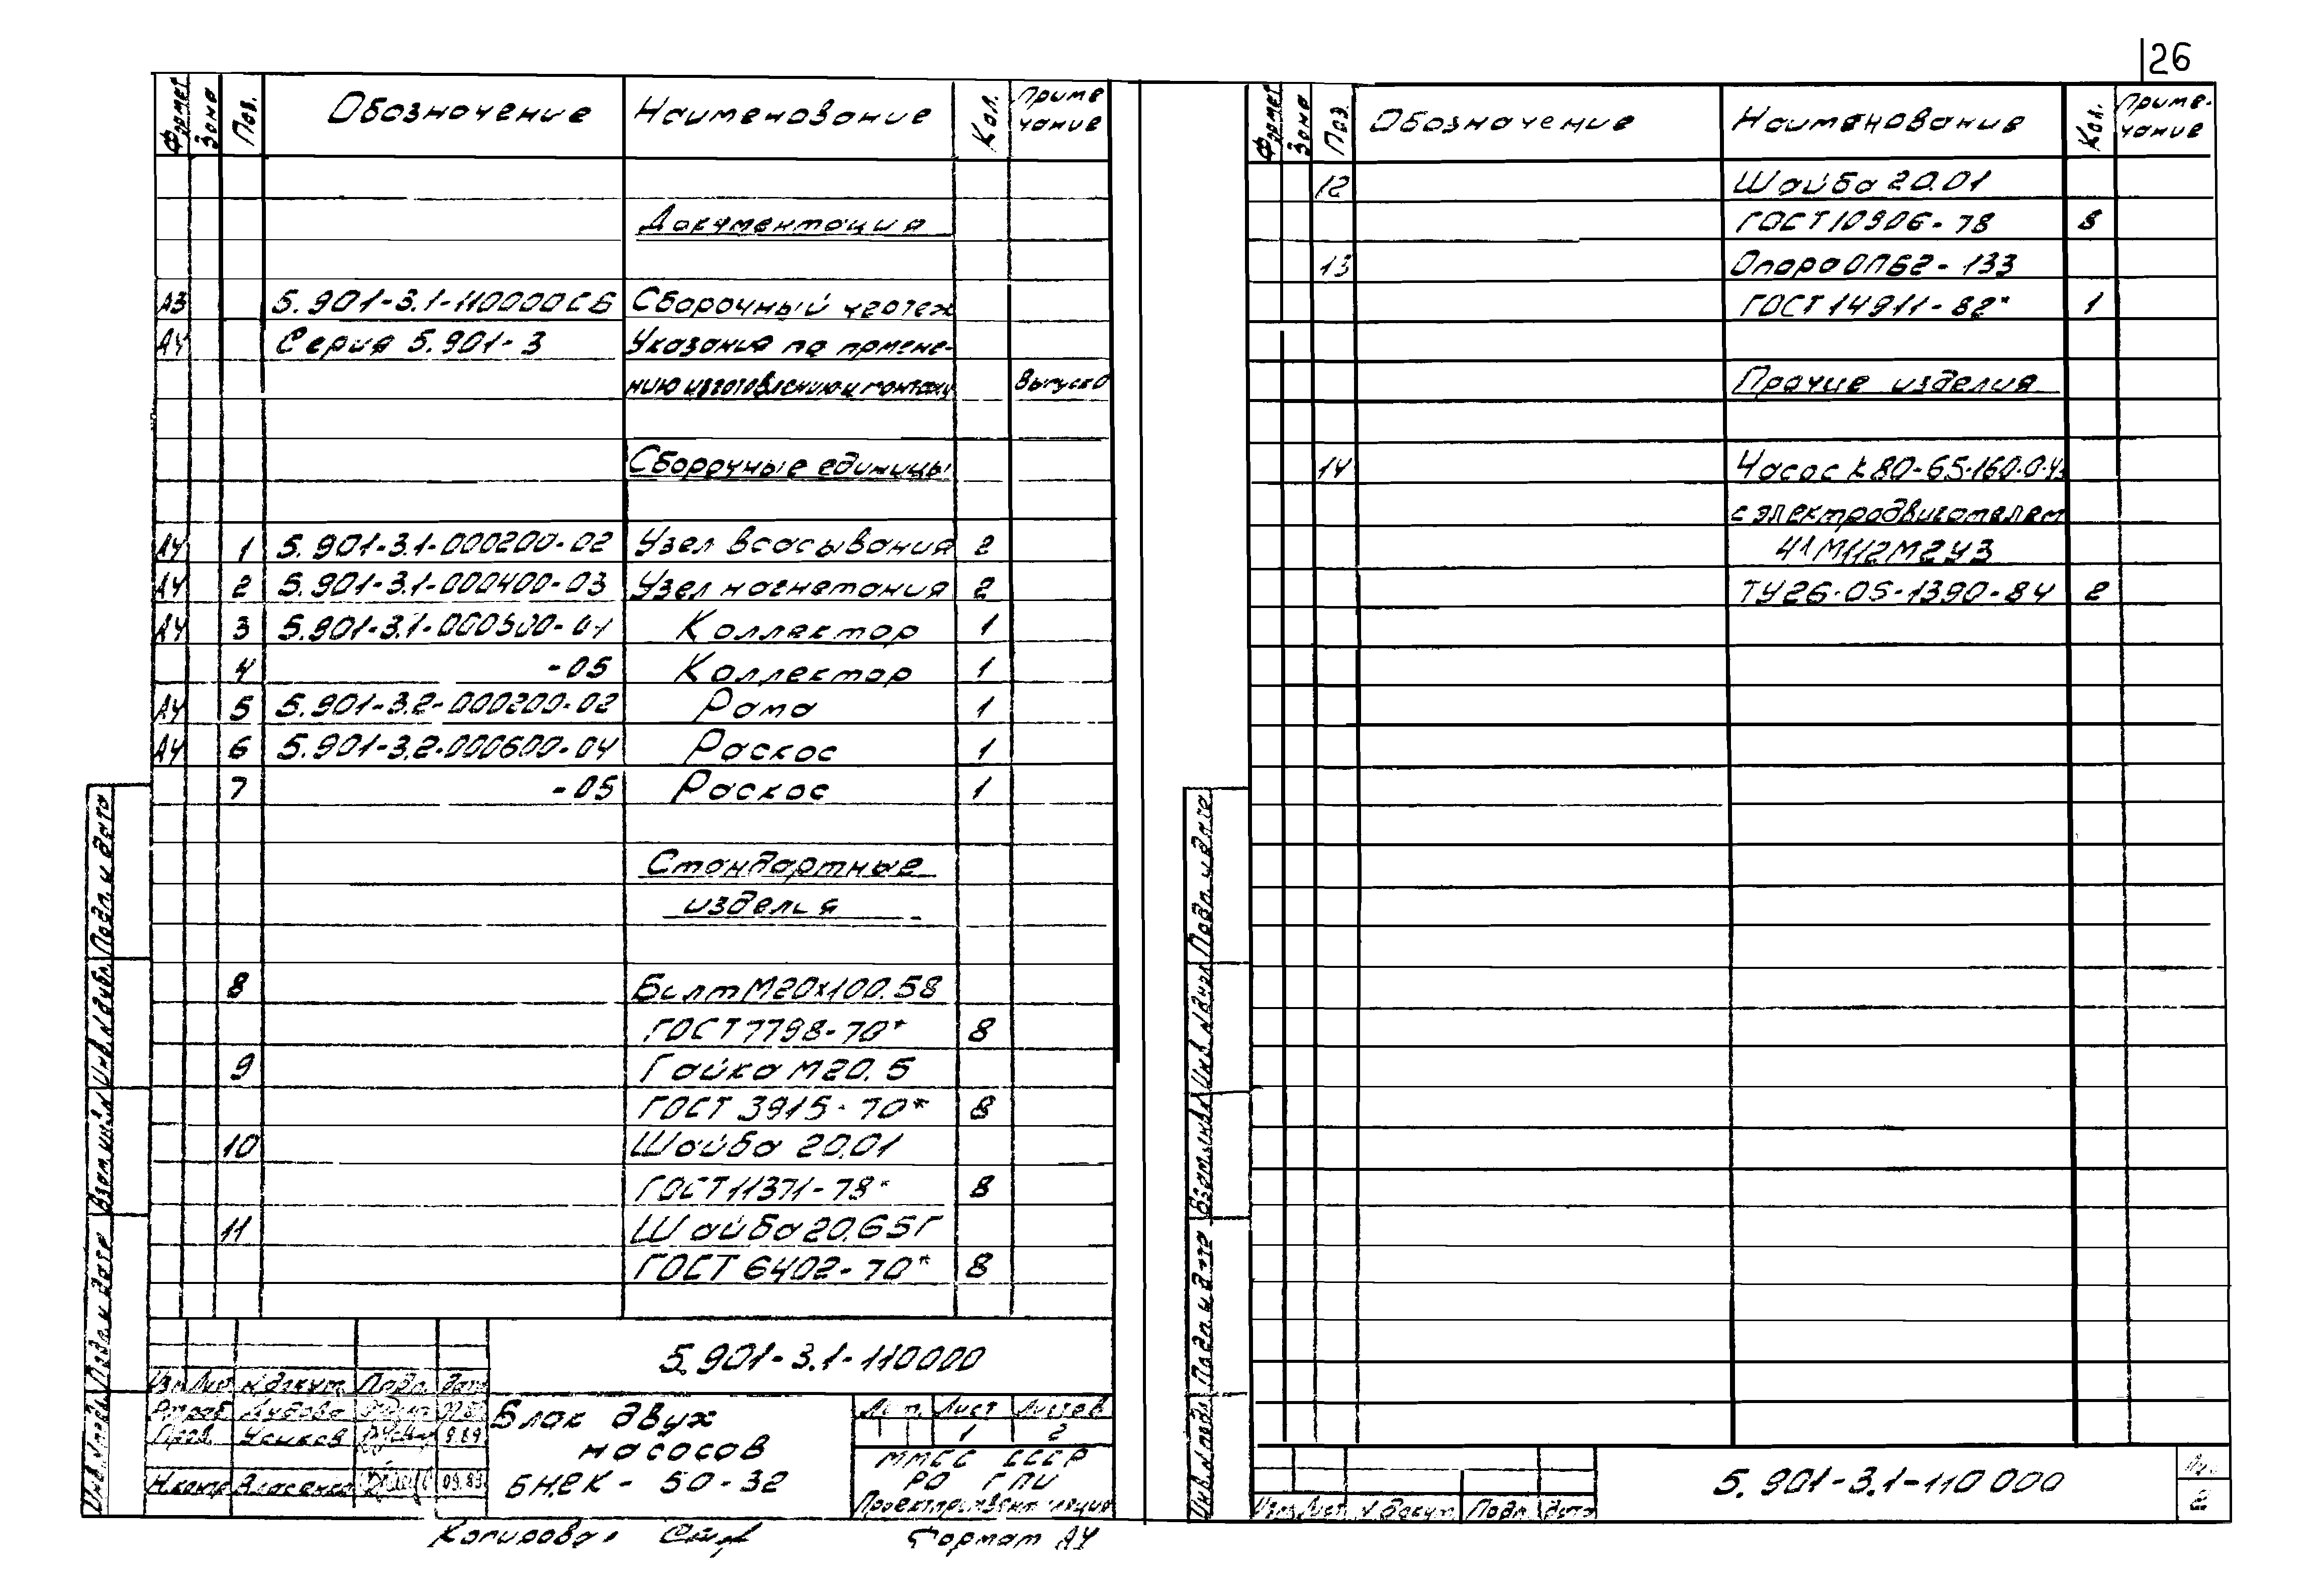 26
Формат Зона Поз. Обозначение Наименование Кол. Приме чание
Документация
А3 5.901-3.1-110000СБ Сборочный чертеж
А4 Серия 5.901-3 Указания по примене-
нию изготовлению и монтажу Выпуск 0
Сборочные единицы
А4 1 5.901-3.1-000200-02 Узел всасывания 2
А4 2 5.901-3.1-000400-03 Узел нагнетания 2
А4 3 5.901-3.1-000500-04 Коллектор 1
4 -05 Коллектор 1
А4 5 5.901-3.2-000200-02 Рама 1
А4 6 5.901-3.2-000600-04 Раскос 1
7 -05 Раскос 1
Стандартные
изделия
8 Болт М20х100.58
ГОСТ 7798-70* 8
9 Гайка М20.5
ГОСТ 3915-70* 8
10 Шайба 20.01
ГОСТ 11371-78* 8
11 Шайба 20.65Г
ГОСТ 6402-70* 8
5.901-3.1-110000
Изм Лист N докум. Подп. Дата
Разраб.
Пров. Усиков 9.89
Н.контр Власенко
Блок двух
насосов
БНВК-50-32
Лит. Лист Листов
1 2
ММСС СССР
РО ГПИ
Проектпромвентиляция
Копировал
Формат А4
Инв. N подл. Подп. и дата Взам. инв. N Инв. N дубл. Подп. и дата
Формат Зона Поз. Обозначение Наименование Кол. Приме-чание
12 Шайба 20.01
ГОСТ 10906-78 8
13 Опора ОПБ2-133
ГОСТ 14911-82* 1
Прочие изделия
14 Насос К80-65-160-0-У3
с электродвигателем
4АМ112М2У3
ТУ26-05-1390-84 2
5.901-3.1-110 000
Изм Лист N докум. Подп. Дата
Лист
2
Инв. N подл. Подп. и дата Взам. инв. N Инв. N дубл. Подп. и дата